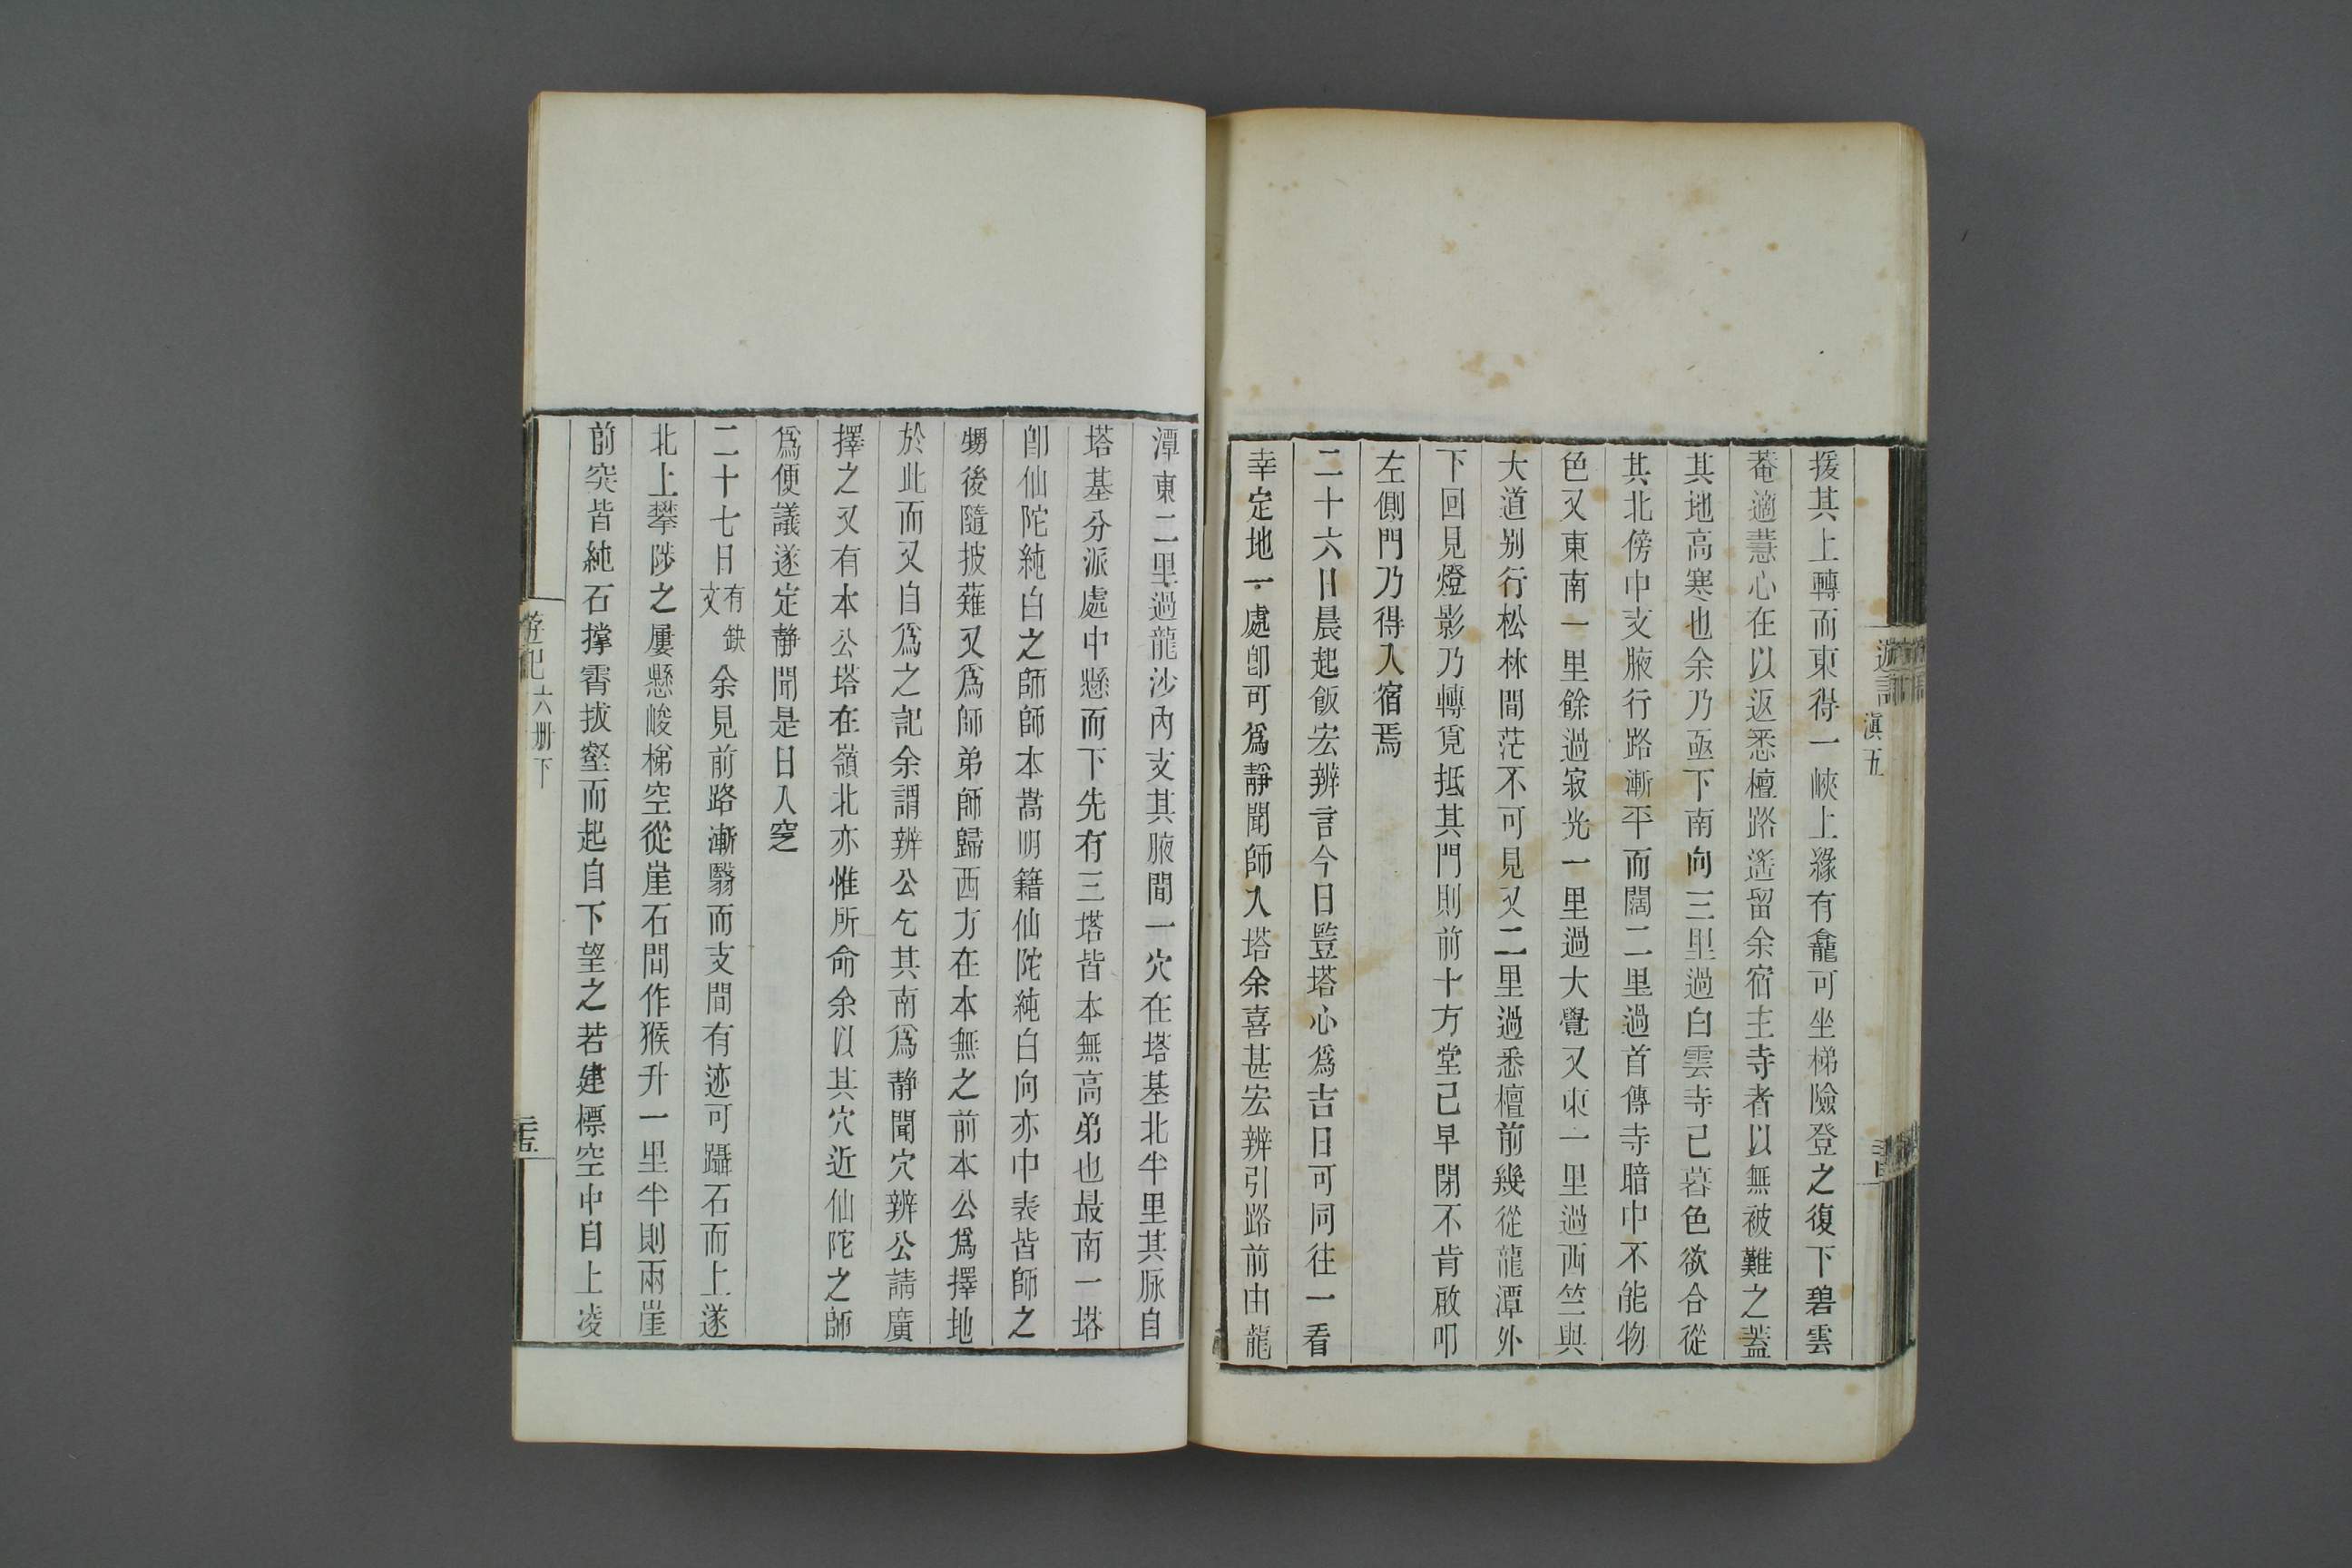 遊記
滇五
援其上轉而東得一峽上緣有龕可坐梯險登之復下碧雲
菴適慧心在以返悉檀路遙留余宿主寺者以無被難之蓋
其地高寒也余乃亟下南向三里過白雲寺已暮色欲合從
其北傍中支腋行路漸平而闊二里過首傳寺暗中不能物
色又東南一里餘過寂光一里過大覺又東一里過西竺與
大道别行松林間茫不可見又二里過悉檀前幾從龍潭外
下回見燈影乃轉覓抵其門則前十方堂已早閉不肯啟叩
左側門乃得入宿焉
二十六日晨起飯宏辨言今日豎塔心爲吉日可同往一看
幸定地一處卽可爲靜聞師入塔余喜甚宏辨引路前由龍
潭東二里過龍沙內支其腋間一穴在塔基北半里其脉自
塔基分派處中懸而下先有三塔皆本無高弟也最南一塔
卽仙陀純白之師師本嵩明籍仙陀純白向亦中表皆師之
甥後隨披薙又爲師弟師歸西方在本無之前本公爲擇地
於此而又自爲之記余謂辨公乞其南爲静聞穴辨公請廣
擇之又有本公塔在嶺北亦惟所命余以其穴近仙陀之師
爲便議遂定靜聞是日入窆
二十七日有缺文余見前路漸翳而支間有迹可躡石而上遂
北上攀陟之屢懸峻梯空從崖石間作猴升一里半則兩崖
前突皆純石撑霄拔壑而起自下望之若建標空中自上凌
遊記
六册下